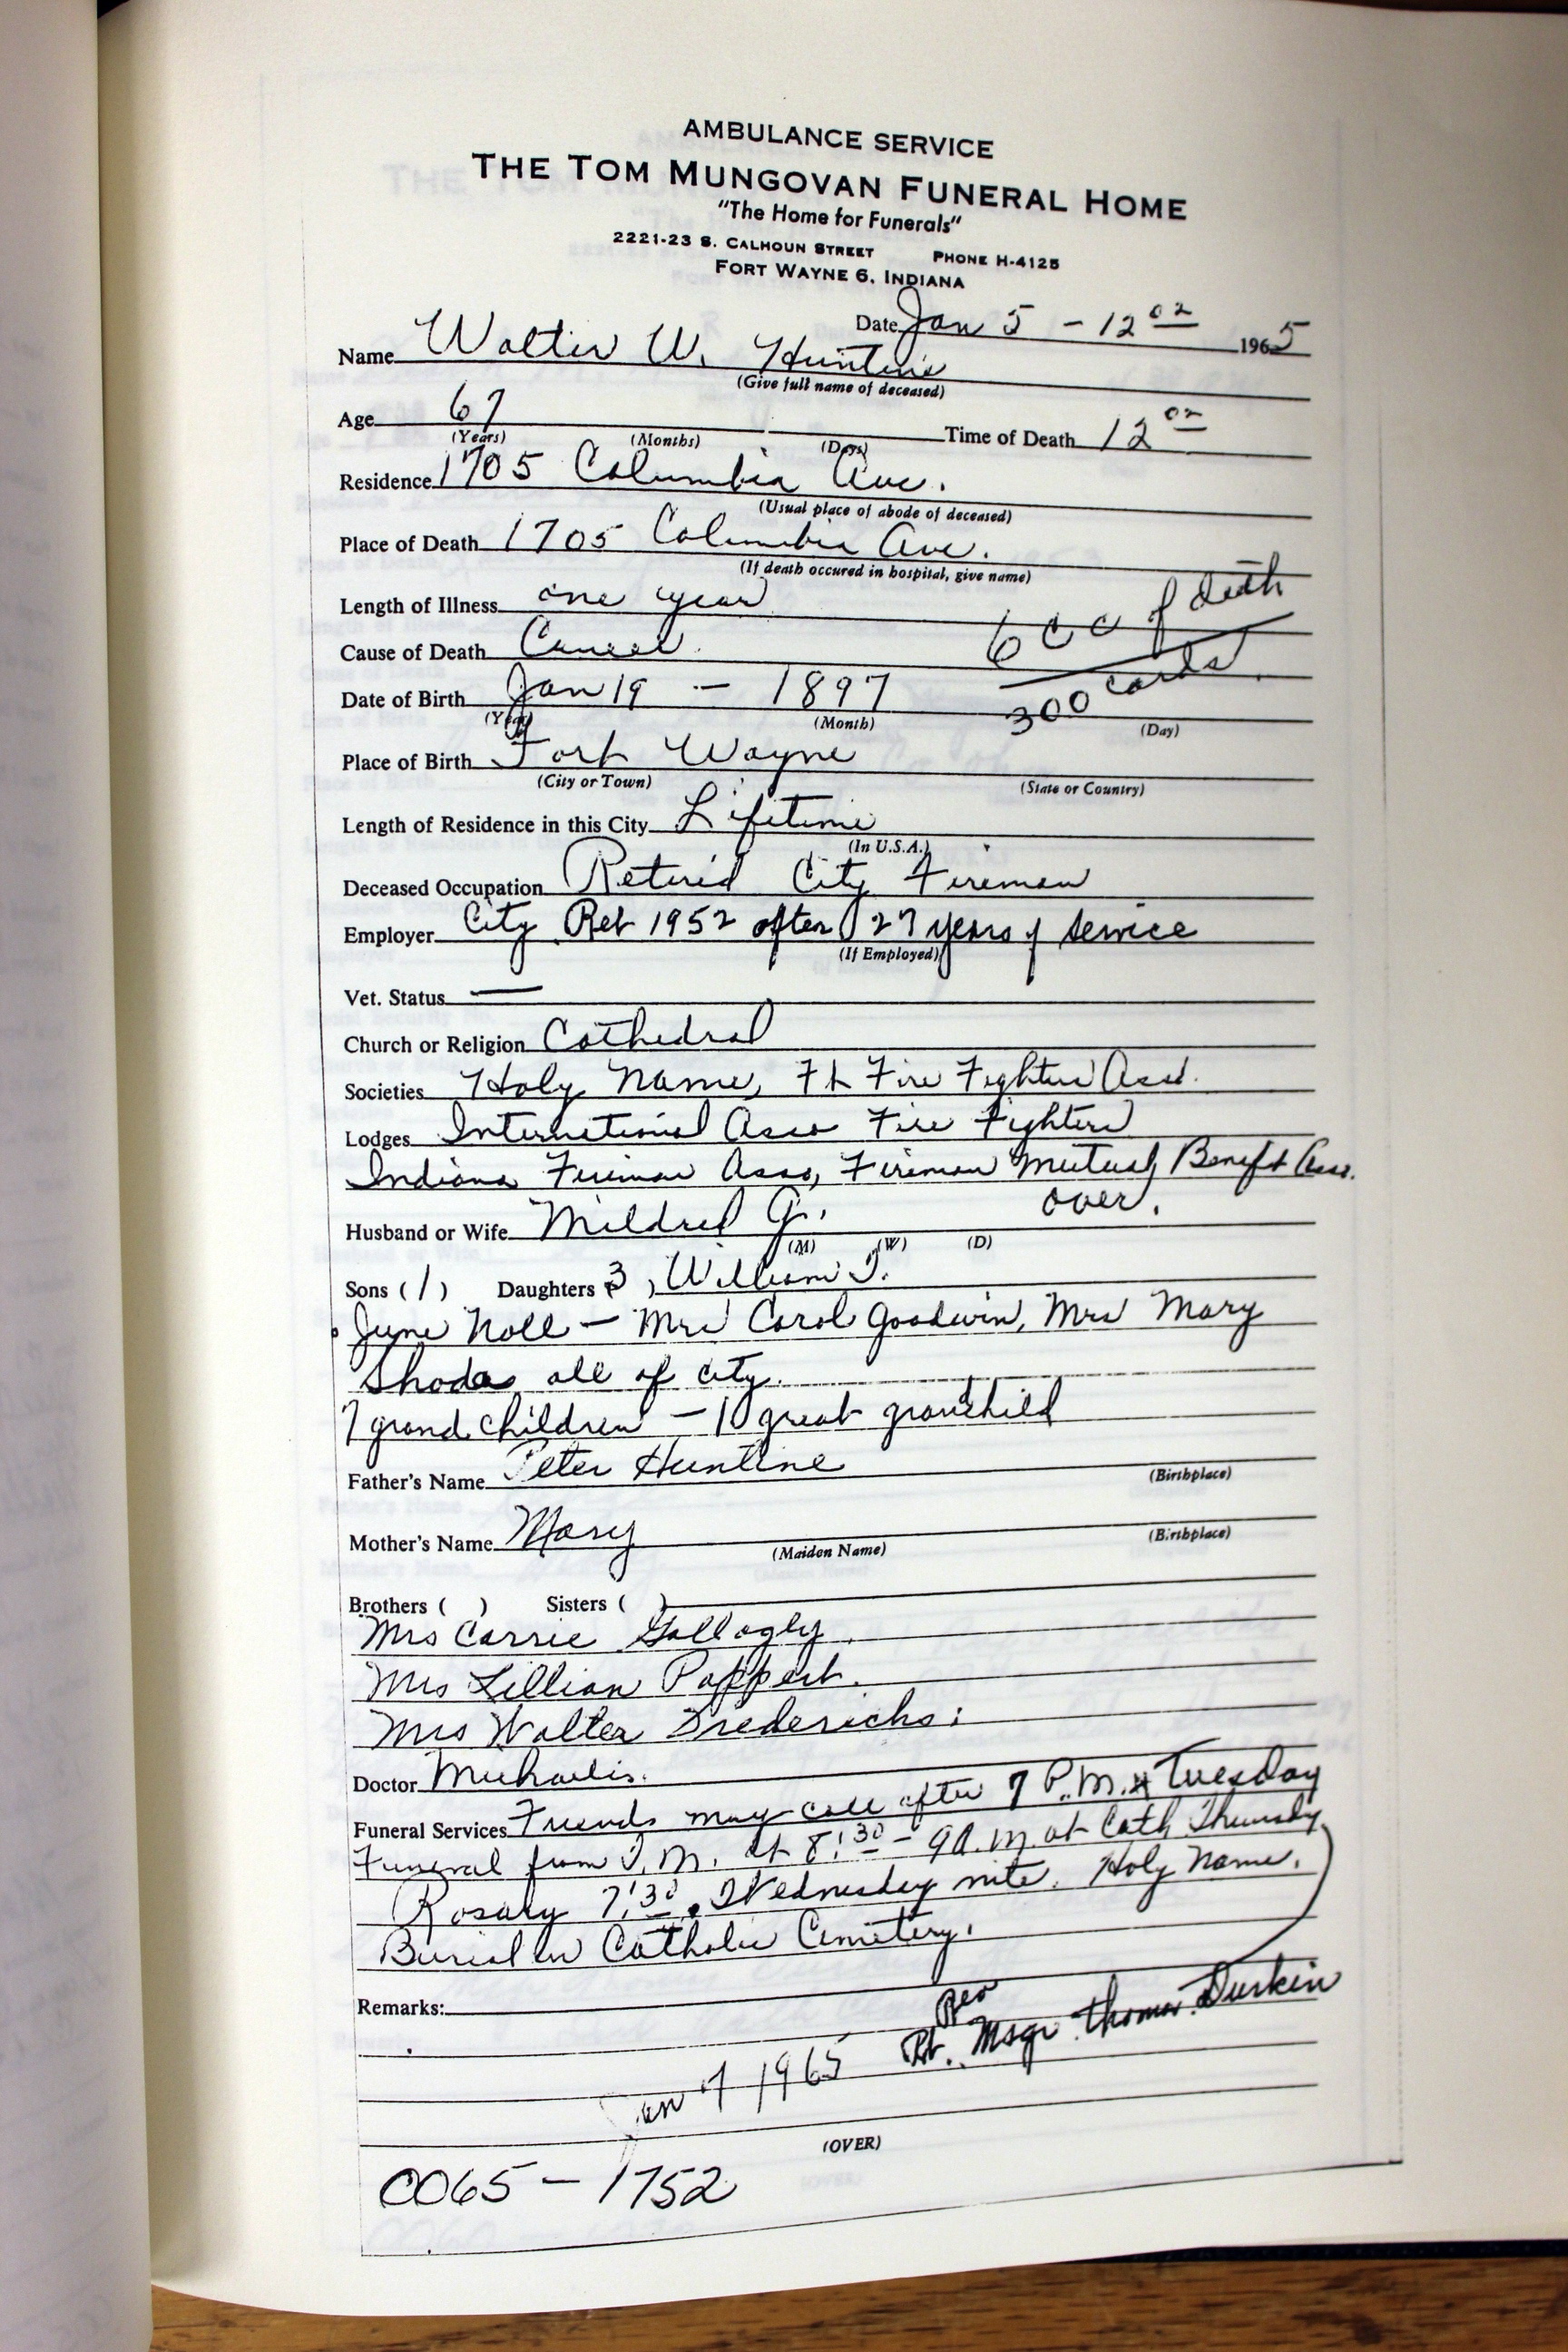 AMBULANCE SERVICE
THE TOM MUNGOVAN FUNERAL HOME
"The Home for Funerals"
2221-23 S. CALHOUN STREET PHONE H-4125
FORT WAYNE 6, INDIANA
Date Jan 5 - 12 02 1965
Name Walter W. Huntine
(Give full name of deceased)
Age 67 Time of Death 12 02
(Years) (Months) (Days)
Residence 1705 Columbia Ave.
(Usual place of abode of deceased)
Place of Death 1705 Columbia Ave.
(If death occured in hospital, give name)
Length of Illness one year
6 CC of death
Cause of Death Cancer
300 cards
Date of Birth Jan 19 - 1897
(Year) (Month) (Day)
Place of Birth Fort Wayne
(City or Town) (State or Country)
Length of Residence in this City Lifetime
(In U.S.A.)
Deceased Occupation Retired City Fireman
Employer City Ret 1952 after 27 years of service
(If Employed)
Vet. Status —
Church or Religion Cathedral
Societies Holy Name, Fire Fighters Asso.
Lodges International Asso Fire Fighters
Indiana Fireman Asso, Fireman Mutual Benefit Asso.
over.
Husband or Wife Mildred G.
(M) (W) (D)
Sons (1) Daughters 3 ) William J.
June Noll - Mrs Carol Goodwin, Mrs Mary
Shoda all of city.
7 grand children - 10 great granchild
Father's Name Peter Huntine (Birthplace)
Mother's Name Mary
(Maiden Name) (Birthplace)
Brothers ( ) Sisters ( )
Mrs Carrie Gollogly
Mrs Lillian Poppert.
Mrs Walter Drederichs;
Doctor Michaelis.
Funeral Services Friends may call after 7 P.M. Tuesday
Funeral from T.M. at 8:30 - 9 A.M. at Cath Thursday
Rosary 7:30. Wednesday nite. Holy Name.
Burial in Catholic Cemetery.
Remarks:
Rev
Rt. Msgr Thomas Durkin
Jan 7 1965
(OVER)
0065 - 1752